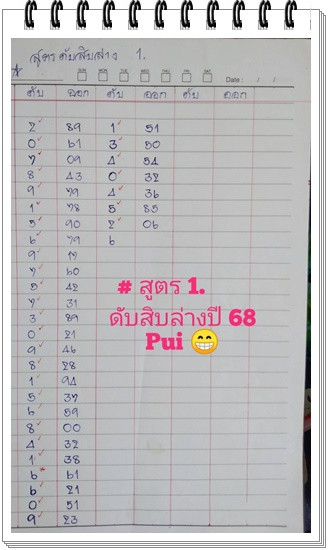 สูตรดับสิบล่าง 1.
Date : / /
ดับ ออก ดับ ออก ดับ ออก
2 89 1 51
0 61 3 50
7 09 4 54
8 43 0 32
9 79 4 36
1 78 5 85
5 90 2 06
6 79 6
9 17
7 60
5 42
7 31
3 89
0 21
9 46
8 28
1 94
5 37
6 59
8 00
4 32
1 38
6 61
6 21
0 51
9 23
# สูตร 1.
ดับสิบล่างปี 68
Pui 😁